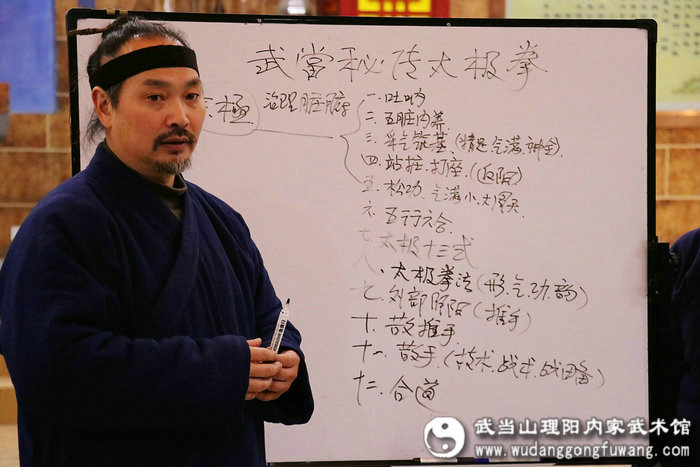 武當秘传太极拳
極 治理脏腑
一. 吐吶
二. 五脏内养
三. 采气筑基(精足气满.神全).
四. 站桩.打座.(返阳)
五. 松功.气满小.大周天
六. 五行六合
七. 太极十三式
八. 太极拳法(形.气.功.韵)
七. 外部阴阳(推手)
十. 散推手
十一. 散手(技术.战术.战略)
十二. 合道
武当山理阳内家武术馆
www.wudanggongfuwang.com